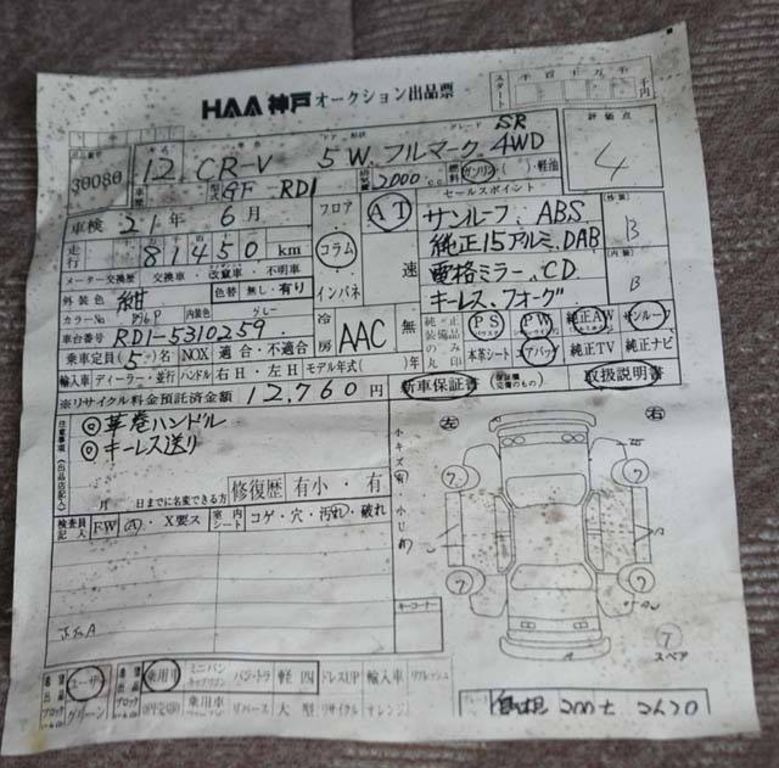 HAA神戸 オークション出品票
スタート 千 百 十 万 千 千円
出品番号 車名 ドア 形状 グレード 評価点
30080 12 CR-V 5W フルマーク SR 4WD 4
型式 GF RD1 排気量 2000cc 燃料 ガソリン ( )・軽油
車検 21年 6月 フロア AT セールスポイント
サンルーフ、ABS 外装 B
走行 81450 km コラム 純正15アルミ、DAB
メーター交換歴 交換車・改竄車・不明車 速 電格ミラー、CD 内装 B
外装色 紺 色替 無し・有り インパネ キーレス、フォグ
カラーNo. 内装色 グレー 冷房 AAC 無 純正装備品のみ丸印 PS PW 純正AW サンルーフ
車台番号 RD1-5310259 本革シート エアバッグ 純正TV 純正ナビ
乗車定員(5)名 NOX 適合・不適合
輸入車 ディーラー・並行 ハンドル 右H・左H モデル年式( )年 新車保証書 (保証継承交換のもの) 取扱説明書
※リサイクル料金預託済金額 12,760円
注意事項(出品店記入) ◎革巻ハンドル 左 右
◎キーレス送り
月 日までに名変できる方 修復歴 有小・有
検査員記入 FW A・X要ス 室内シート コゲ・穴・汚れ・破れ
キーコーナー
スペア
ユーザー 乗用車 ミニバン バン・トラ 軽四 ドレスUP 輸入車 リフレッシュ
グリーン 乗用車 リバース 大型 リサイクル オレンジ